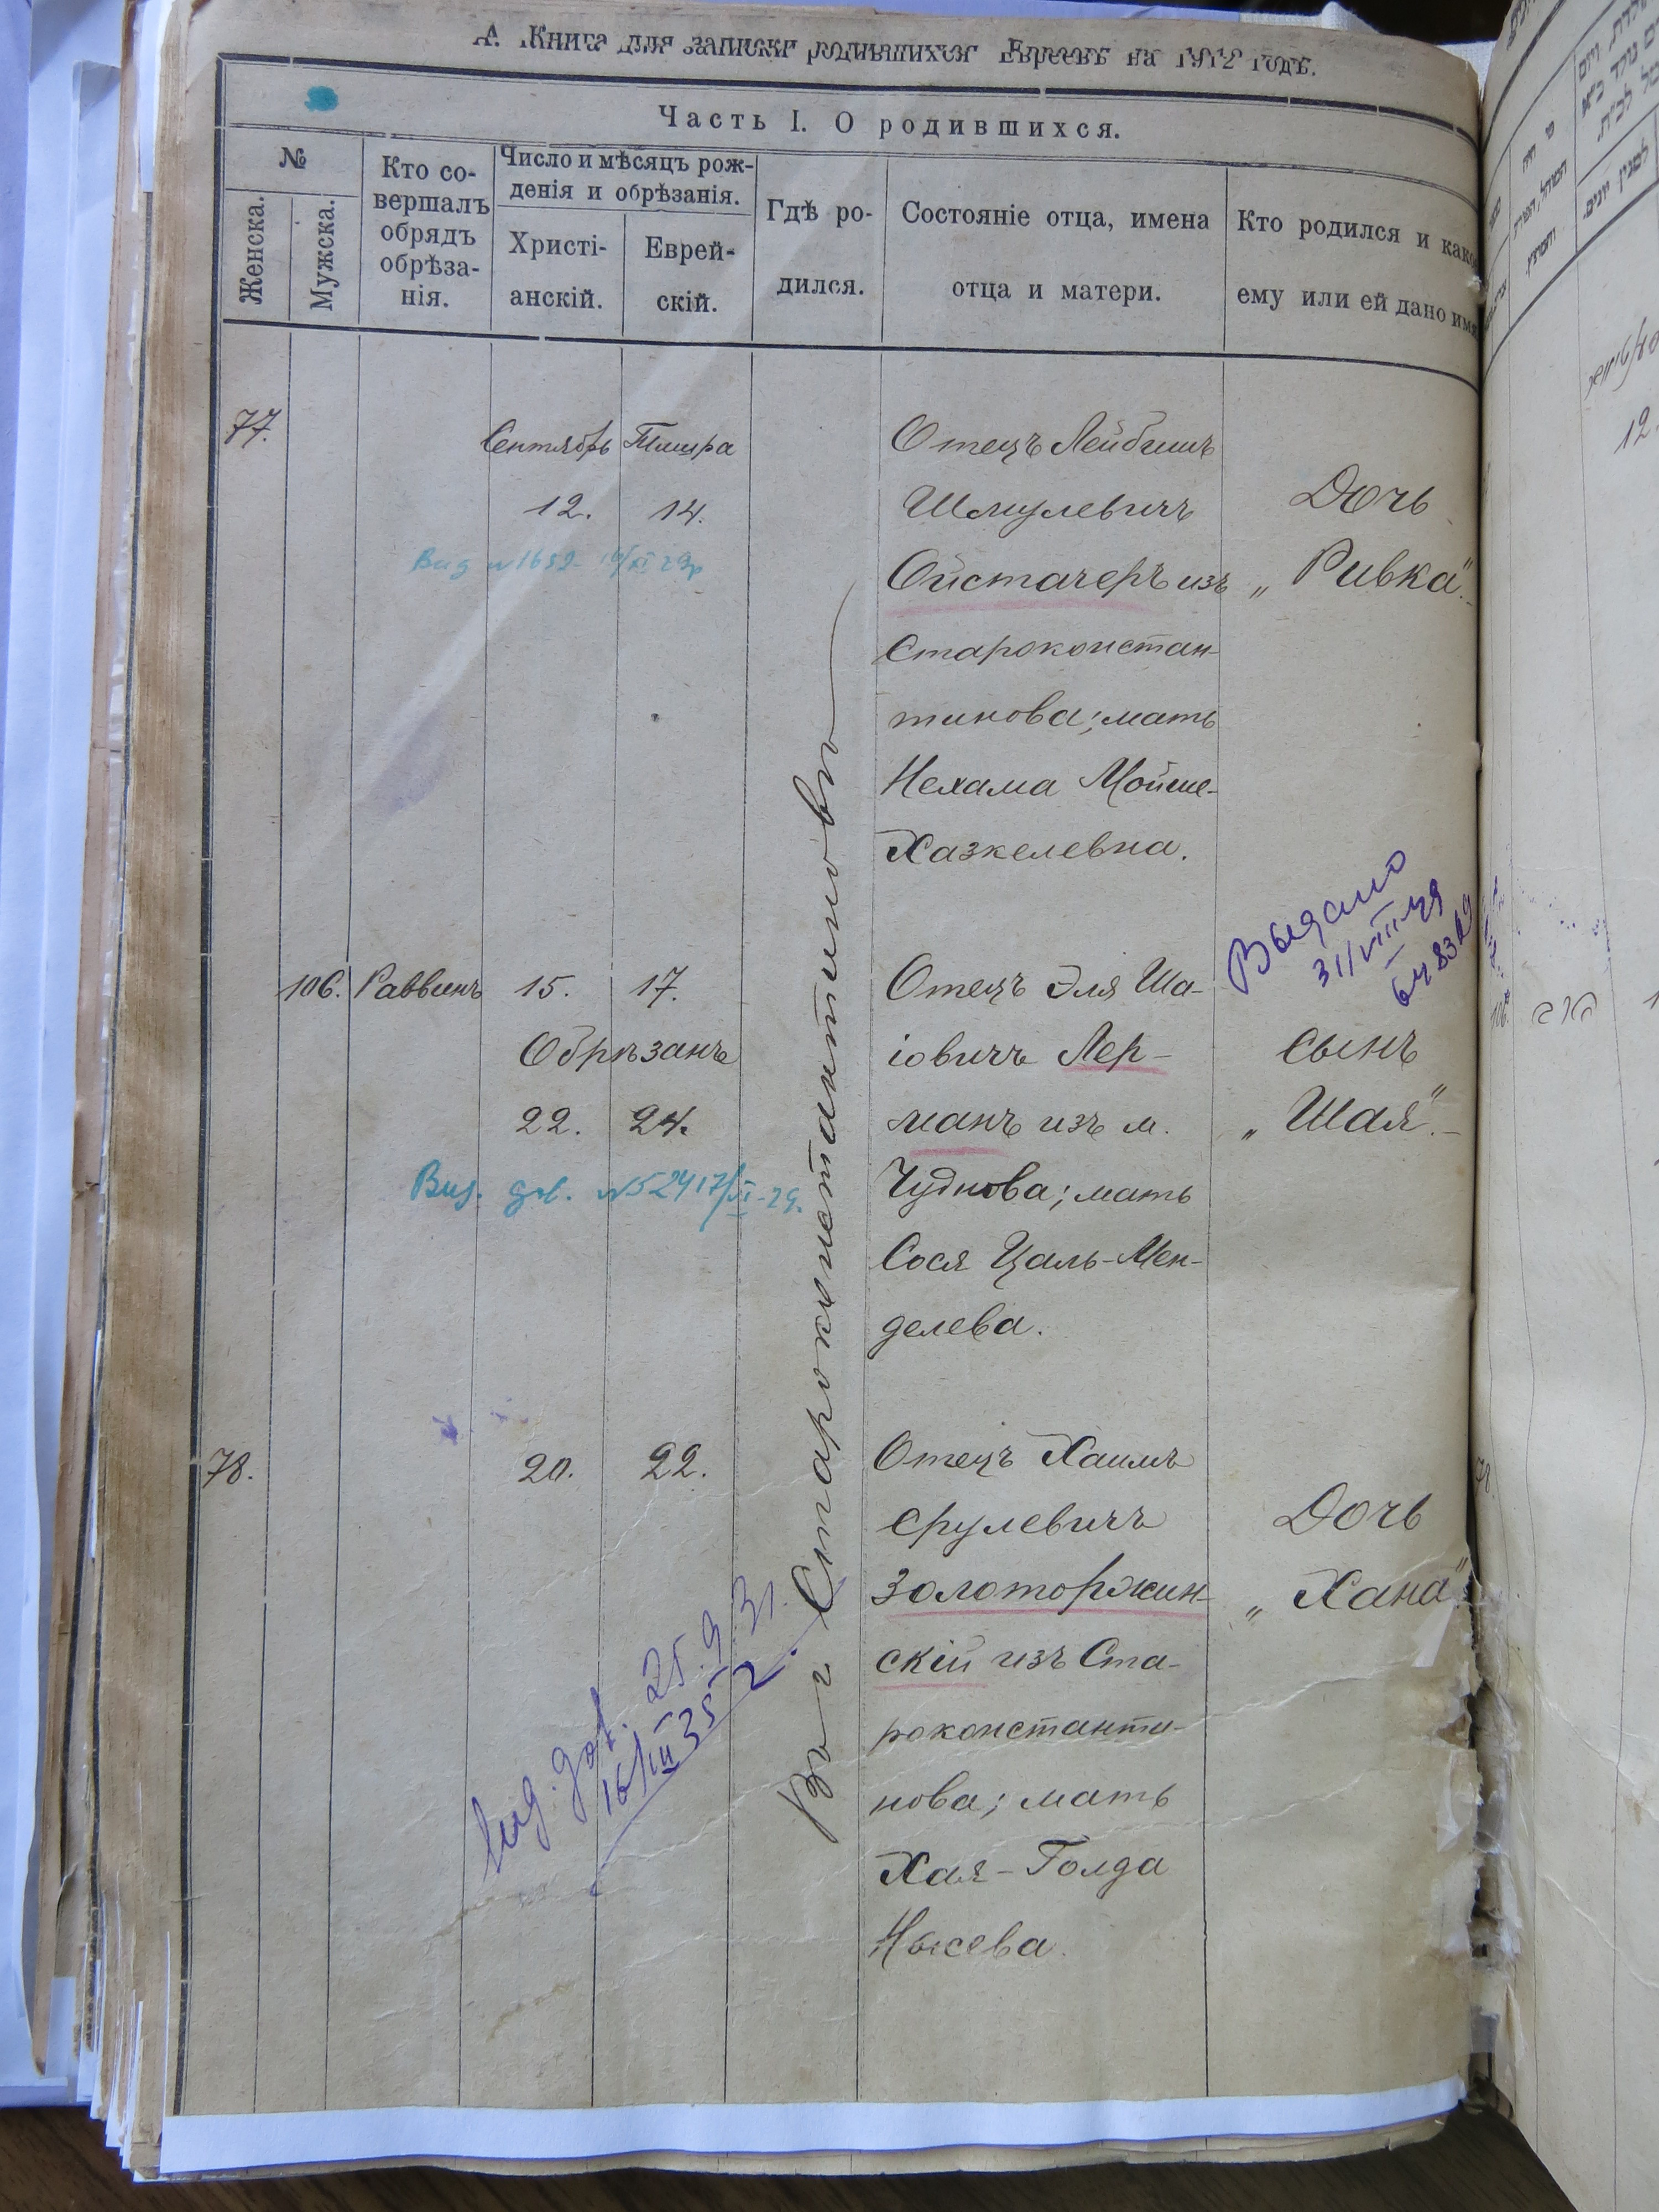 А. Книга для записки родившихся Евреевъ на 1912 годъ.
Часть I. О родившихся.
№
Женска.
Мужска.
Кто со-
вершалъ
обрядъ
обрѣза-
нія.
Число и мѣсяцъ рож-
денія и обрѣзанія.
Христі-
анскій.
Еврей-
скій.
Гдѣ ро-
дился.
Состояніе отца, имена
отца и матери.
Кто родился и како
ему или ей дано имя
77.
Сентябрь Тишра
12. 14.
Вид №1652
Отецъ Лейбишъ
Шмулевичъ
Ойстачеръ изъ
Староконстан-
тинова; мать
Нехама Мойше-
Хазкелевна.
Дочь
„Ривка".
Въ г. Староконстантиновѣ
106. Раввинъ 15. 17.
Обрѣзанъ
22. 24.
Вид. дов. №5241 7/XI-29.
Отецъ Эля Ша-
іовичъ Лер-
манъ изъ м.
Чуднова; мать
Сося Цаль-Мен-
делева.
Выдано
31/VIII 49
Сынъ
„Шая".
78. 20. 22.
Вид. дов. 25.9.31.
16/III 35
Отецъ Хаимъ
Срулевичъ
Золоторжин-
скій изъ Ста-
роконстанти-
нова; мать
Хая-Голда
Нысева.
Дочь
„Хана".
12.